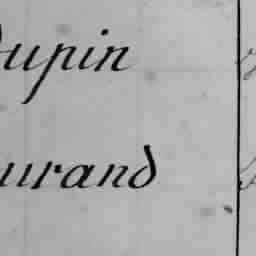 Dupin
urand